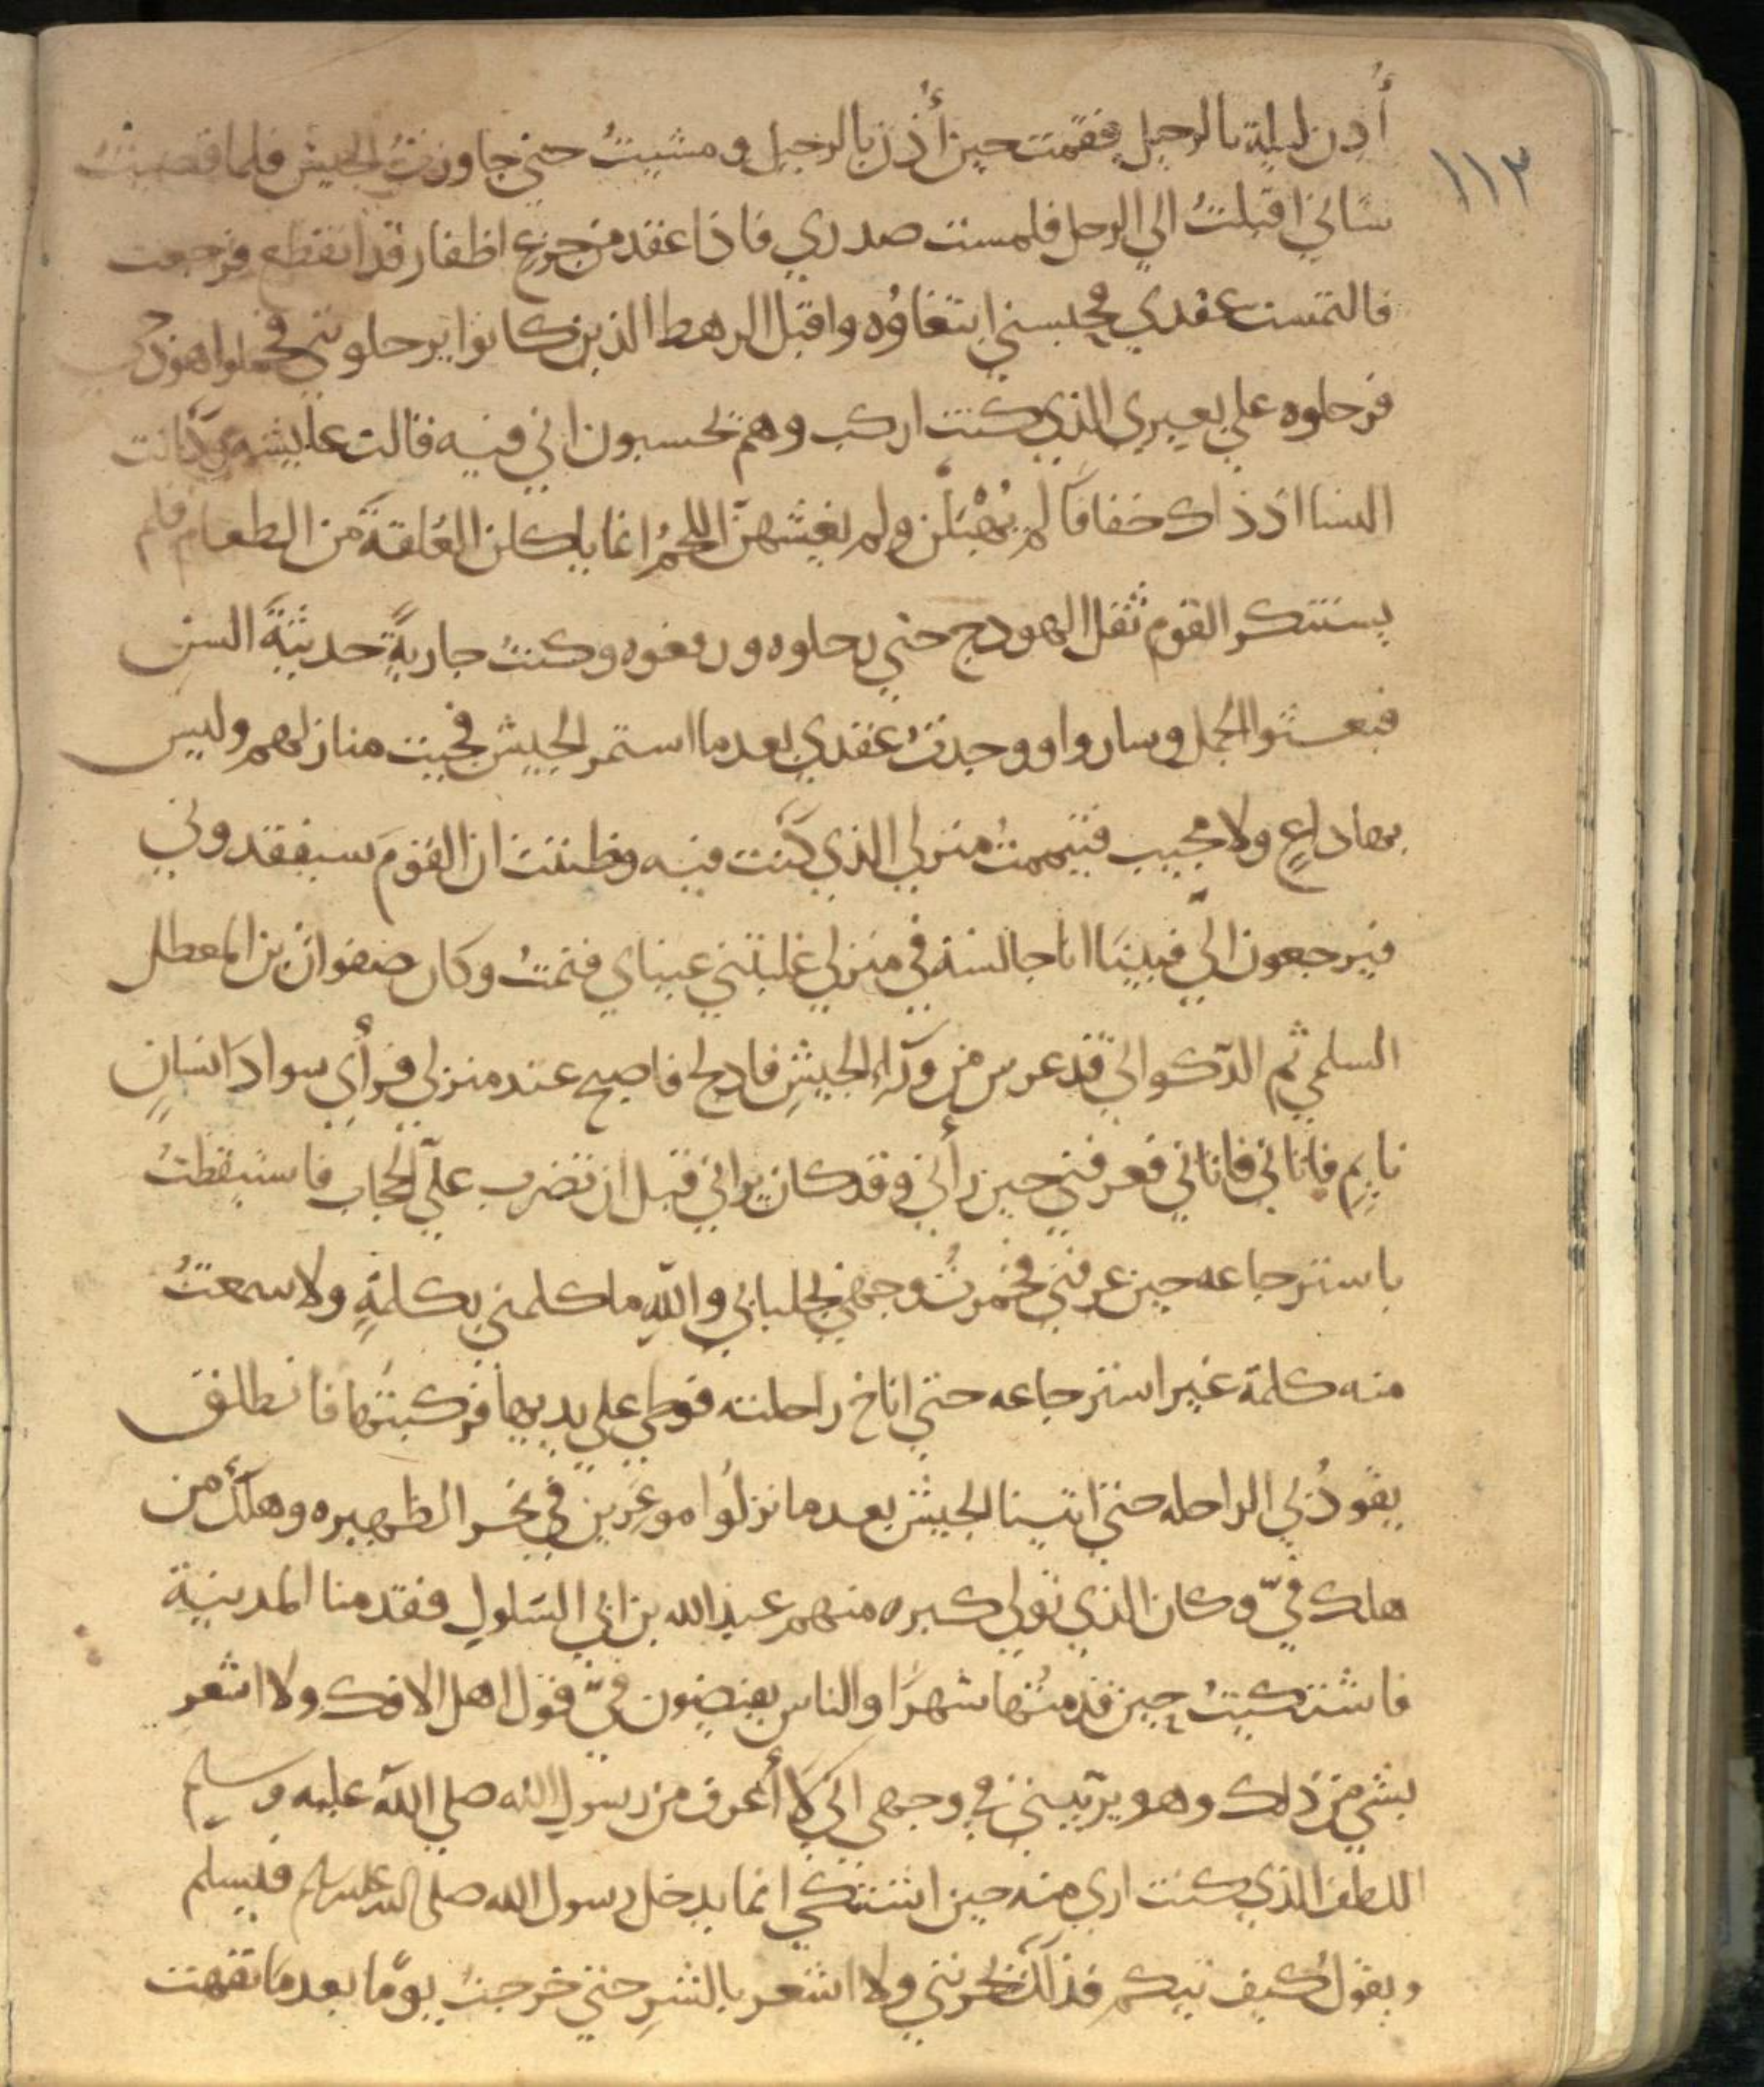 ١١٣
أُذِن ليلة بالرحيل فقمت حين أُذن بالرحيل ومشيتُ حتي جاوزتُ الجيش فلما قضيتُ
شاني اقبلتُ الي الرحل فلمست صدري فاذا عقد من جزع اظفار قد انقطع فرجعت
فالتمست عقدي فحبسني ابتغاؤه واقبل الرهط الذين كانوا يرحلوني فحملوا هودجي
فرحلوه علي بعيري الذي كنت اركب وهم يحسبون اني فيه قالت عايشه وكانت
النسا اذ ذاك خفافا لم يُهْبَلْن ولم يغشهنّ اللحمُ انما ياكلن العُلقةَ من الطعام فلم
يستنكر القوم ثقل الهودج حتي رحلوه ورفعوه وكنتُ جاريةً حديثةَ السن
فبعثوا الجمل وساروا ووجدتُ عقدي بعد ما استمر الجيش فجيت منازلهم وليس
بها داعٍ ولا مجيب فتيممتُ منزلي الذي كنت فيه وظننت ان القومَ سيفقدوني
فيرجعون اليّ فبينَا انا جالسة في منزلي غلبتني عيناي فنمتُ وكان صفوان بن المعطل
السلمي ثم الذكواني قد عرس من ورآءِ الجيشِ فادلج فاصبح عند منزلي فرأي سوادَ انسانٍ
نايمٍ فاتاني فاتاني فعرفني حين رأني وقد كان يراني قبل ان تضرب عليّ الحجاب فاستيقظتُ
باسترجاعه حين عرفني فخمرتُ وجهي بجلبابي واللهِ ما كلمني بكلمةٍ ولا سمعتُ
منه كلمة غير استرجاعه حتي اناخ راحلته فوطي علي يديها فركبتُها فانطلق
يقودُ بي الراحله حتي اتينا الجيش بعد ما نزلُوا موغرين في نحر الظهيره وهلكَ من
هلك فيّ وكان الذي تولي كبره منهم عبد الله بن ابي السَلول فقدمنا المدينة
فاشتكيتُ حين قدمتُها شهرًا والناس يفيضون فيّ قول اهل الافك ولا اشعر
بشي من ذلك وهو يريبني في وجهي اني لَا أعرف من رسول الله صلي الله عليه وسلم
اللطف الذي كنت اري منه حين اشتكي انما يدخل رسول الله صلي الله عليه وسلم فيسلم
ويقول كيف تيكم فذلك يحزنني ولا اشعر بالشرِ حتي خرجتُ يومًا بعد ما نقهت